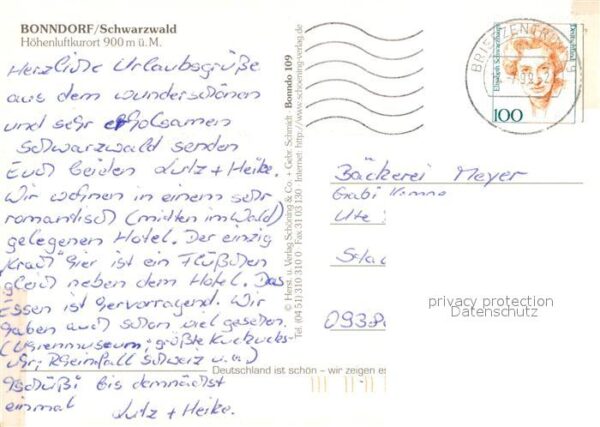 BONNDORF/Schwarzwald
Höhenluftkurort 900 m ü. M.
Herzliche Urlaubsgrüße
aus dem wunderschönen
und sehr erholsamen
Schwarzwald senden
Euch beiden Lutz + Heike.
Wir wohnen in einem sehr
romantisch (mitten im Wald)
gelegenen Hotel. Der einzig
"Krach" hier ist ein Flüßchen
gleich neben dem Hotel. Das
Essen ist hervorragend. Wir
haben auch schon viel gesehen.
(Uhrenmuseum; größte Kuckucks-
uhr; Rheinfall Schweiz u.a.)
Tschüßi bis demnächst
einmal Lutz + Heike.
© Herst. u. Verlag Schöning & Co. + Gebr. Schmidt Bonndo 109
Tel. (04 51) 310 310 0 Fax 31 03 130 Internet: http://www.schoening-verlag.de
Deutschland ist schön – wir zeigen es
BRIEFZENTRUM
Elisabeth Schwarzhaupt
Deutschland
100
Bäckerei Meyer
Gabi
Ute
Stad
0938
privacy protection
Datenschutz